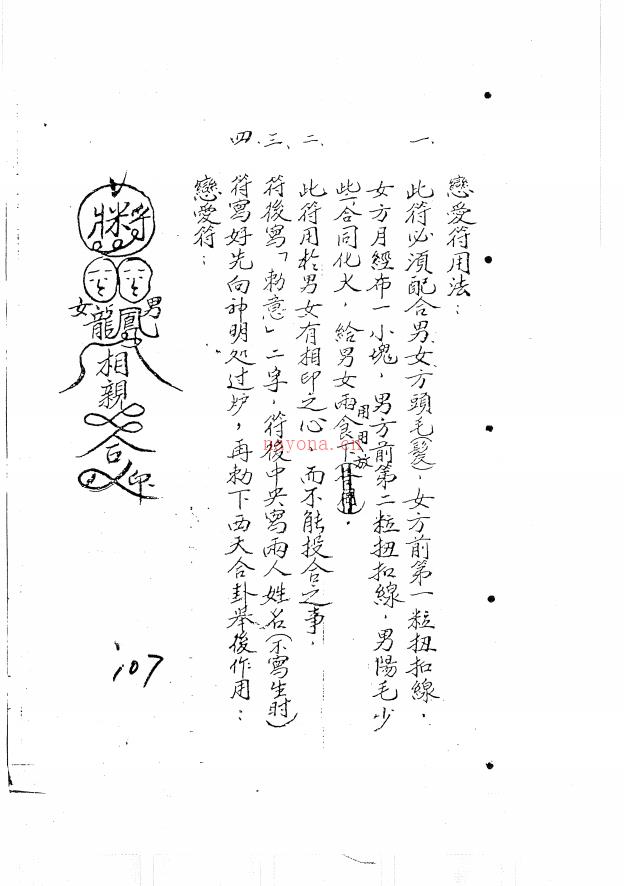 戀愛符用法：
一、此符必須配合男女方頭毛(髮)，女方前第一粒扭扣線，
女方月經布一小塊，男方前第二粒扭扣線，男陽毛少
些合同化火，給男女兩食
用用放
二、此符用於男女有相印之心，而不能投合之事，
三、符後寫「勅意」二字，符後中央寫兩人姓名(不寫生时)
四、符寫好先向神明処过炉，再勅下西天合卦举後作用：
戀愛符：
男
女
龍鳳
相親
合
印
107
nayona.cn